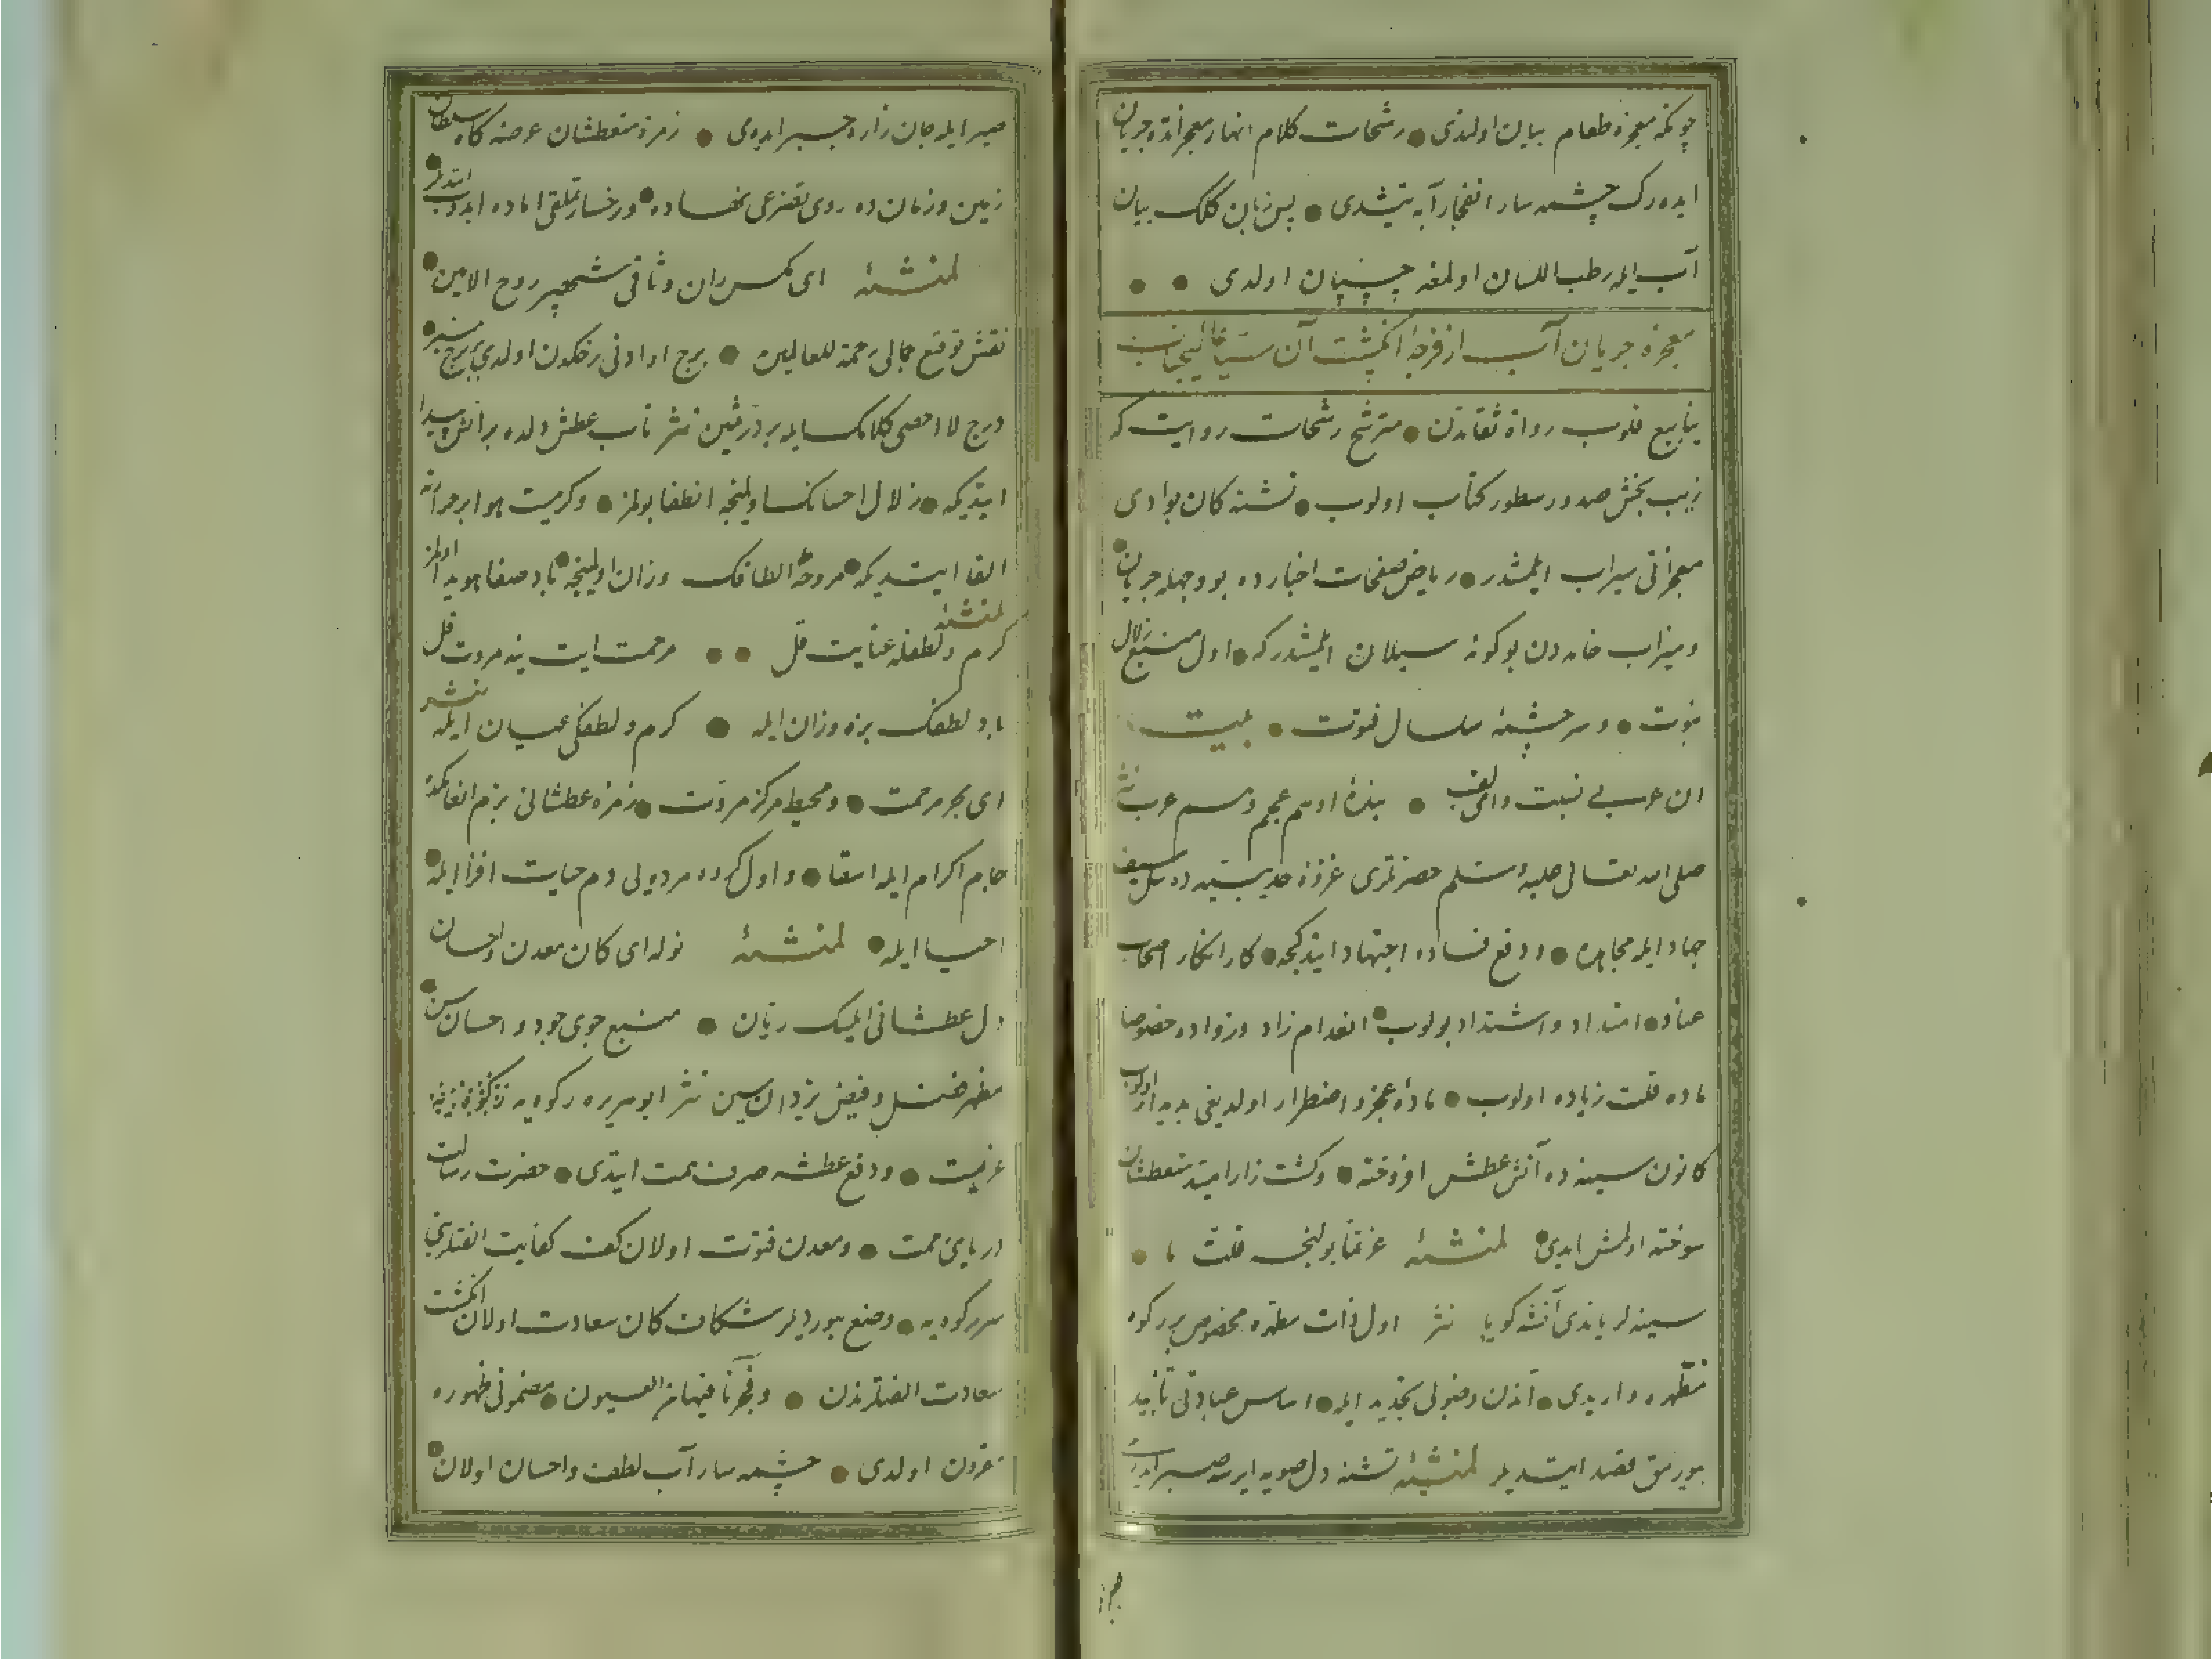 چونكه معجزۀ طعام بيان اولندى رشحات كلام انهار معجزاتده جريان
ايده رك چشمه سار انفجار آبه يتيشدى پس زبان كلك بيان
آب ايله رطب اللسان اولمغه چسپان اولدى
معجزۀ جريان آب از فرجۀ انكشت آن سيد عاليجناب
ينابيع قلوب رواة ثقاتدن مترشح رشحات روايت كه
زيب بخش صدور سطور كتاب اولوب تشنه كان بوادى
معجزاتى سيراب ايلمشدر رياض صفحات اخبارده بو وجهله جريان
وميزاب خامه دن بو كونه سيلان ايلمشدر كه اول منبع زلال
نبوت وسرچشمۀ سلسال فتوت بيت
ان عربى نسبت وامى لقب بندۀ او هم عجم وهم عرب نثر
صلى الله تعالى عليه وسلم حضرتلرى غزوۀ حديبيه ده سل سيف
جهاد ايله مجاهده ودفع فساده اجتهاد ايتدكجه كار انكار اصحاب
عناد امتداد واشتداد بولوب انعدام زاد وزواده خصوصا
ماده قلت زياده اولوب مادۀ عجز واضطرار اولديغى بديدار اولوب
كانون سينه ده آتش عطش افروخته وكشت زار اميد متعطشان
سوخته اولمش ايدى لمنشئه غزوتا بولنجه قلت ما
سينه لر ياندى آتشه كويا نثر اول ذات مطهره مخصوص بر ركوه
مطهره وار يدى آندن وضولى تجديد ايله اساس عبادتى تأييد
بيورمق قصد ايتديلر لمنشئه تشنه دل صويه ايرسه صبر ايدر
صبر ايله جان زاره جبر ايدرمى زمرۀ متعطشان عرصه كاه سلطان
زمين وزمان ده روى تضرعى نهاده ورخسار تملقى اماده ايدوب ايتديلر
لمنشئه اى مكس ران وثاقى شهپر روح الامين
نقش توقيع جمالى رحمة للعالمين برج او ادنى رخكدن اولدى برج منير
درج لا احصى كلامكسايله بر در ثمين نثر تاب عطش دلده بر آتش پيدا
ايتديكه زلال احسانكسز اولمينجه انطفا بولمز وكرميت هوا بر حرارت
القا ايتديكه مروحۀ الطافك وزان اولمينجه باد صفا هويدا اولمز
لمنشئه كرم ولطفله عنايت قل مرحمت ايت ينه مروت قل
باد لطفك بزه وزان ايله كرم ولطفكى عيان ايله نثر
اى بحر مرحمت ومحيط مركز مروت زمرۀ عطشانى بزم انعامكده
جام اكرام ايله اسقا واول كروه مرده لى دم حيات افزا ايله
احيا ايله لمنشئه نوله اى كان معدن واحسان
دل عطشانى ايلسك ريان منبع جوى جود واحسان سن
مظهر فضل وفيض يزدان سين نثر ابو هريره ركوه يه
عزيمت ودفع عطشه صرف همت ايتدى حضرت رسالت
درياى همت ومعدن فتوت اولان كف كفايت الفتلريني
سر ركوه يه وضع بيورديلر شكاف كان سعادت اولان انكشت
سعادت الفتلرندن وفجرنا فيها من العيون مضمونى ظهوره
مقرون اولدى چشمه سار آب لطف واحسان اولان